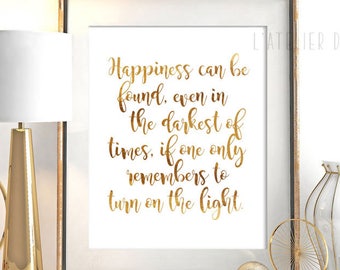 L'ATELIER D
Happiness can be
found, even in
the darkest of
times, if one only
remembers to
turn on the light.